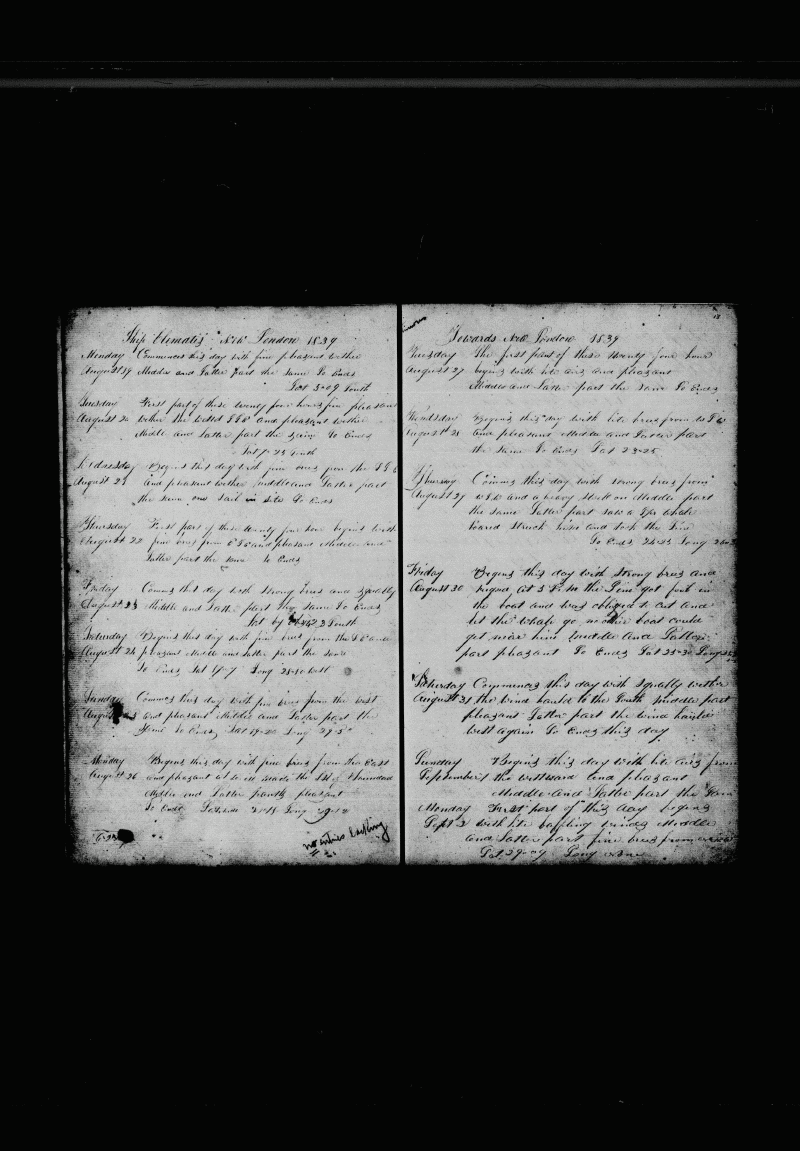 Ship Clematis New London 1839
Monday Commences this day with fine pleasant wether
August 19 Middle and Latter part the same So Ends
Lat 3-09 South
Tuesday First part of these twenty four hours fine pleasant
August 20 wether the wind SSE and pleasant wether
Middle and Latter part the same So Ends
Lat 7-25 South
Wednesday Begins this day with fine bres from the SSE
August 21 and pleasant wether middle and Latter part
the same one sail in site So Ends
Thursday First part of these twenty four hours begins with
August 22 fine bres from ESE and pleasant Middle and
Latter part the same So Ends
Friday Comms this day with strong bres and squally
August 23 Middle and Latter part the same So Ends
Lat by South
Saturday Begins this day with fine bres from the SE and
August 24 pleasant Middle and Latter part the same
So Ends Lat 17-7 Long West
Sunday Commes this day with fine bres from the East
August and pleasant Middle and Latter part the
Same So Ends Lat 19-20 Long 29-5
Monday Begins this day with fine bres from the East
August 26 and pleasant at made the Isl of Trinidad
Middle and Latter part pleasant
So Ends Latitude Long
no entries
Towards New London 1839
Tuesday The first part of these twenty four hours
August 27 begins with lite airs and pleasant
Middle and Latter part the same So Ends
Wendsday Begins this day with lite bres from to
August 28 and pleasant Middle and Latter part
the same So Ends Lat 23-25
Thursday Comms this day with strong bres from
August 29 and a heavy Middle part
the same Latter part saw a whale
loard struck him and took the Line
So Ends 24-25 Long
Friday Begins this day with strong bres and
August 30 at 3 P.M the Line got foul in
the boat and was obliged to cut and
let the whale go, no other boat could
get near him middle and Latter
part pleasant So Ends Lat 25-30 Long
Saturday Commences this day with squally wether
August 31 the wind hauld to the South middle part
pleasant Latter part the wind hauld
west again So Ends this day
Sunday Begins this day with lite airs from
September 1 the westward and pleasant
Middle and Latter part the same
Monday First part of this day begins
Sept 2 with lite baffling winds Middle
and Latter part fine bres from
Lat 29-09 Long